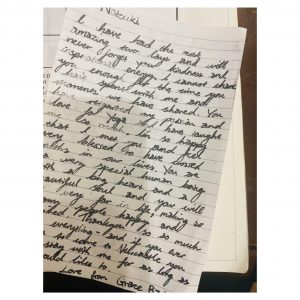 Natsuki
I have had the most
amazing two days and will
never forget your kindness and
inspirational energy. I cannot thank
you enough for the time you
have spent with me and
moments we have shared. You
have my passion and
love for Yoga
me so much. I'm so happy
that I met you and feel
very blessed to have crossed
paths in our lives. You are
a very special human being
with a big heart and a
beautiful soul and you will
go very far in life, making so
many people happy and
Thankyou so much
for everything and if you ever
want to come to Newcastle you
can stay with me for as long as
you would like to.
Love from Grace